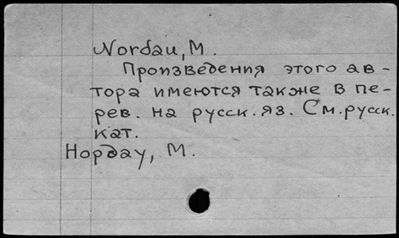 Nordau, M.
Произведения этого ав-
тора имеются также в пе-
рев. на русск. яз. См. русск.
кат.
Нордау, М.